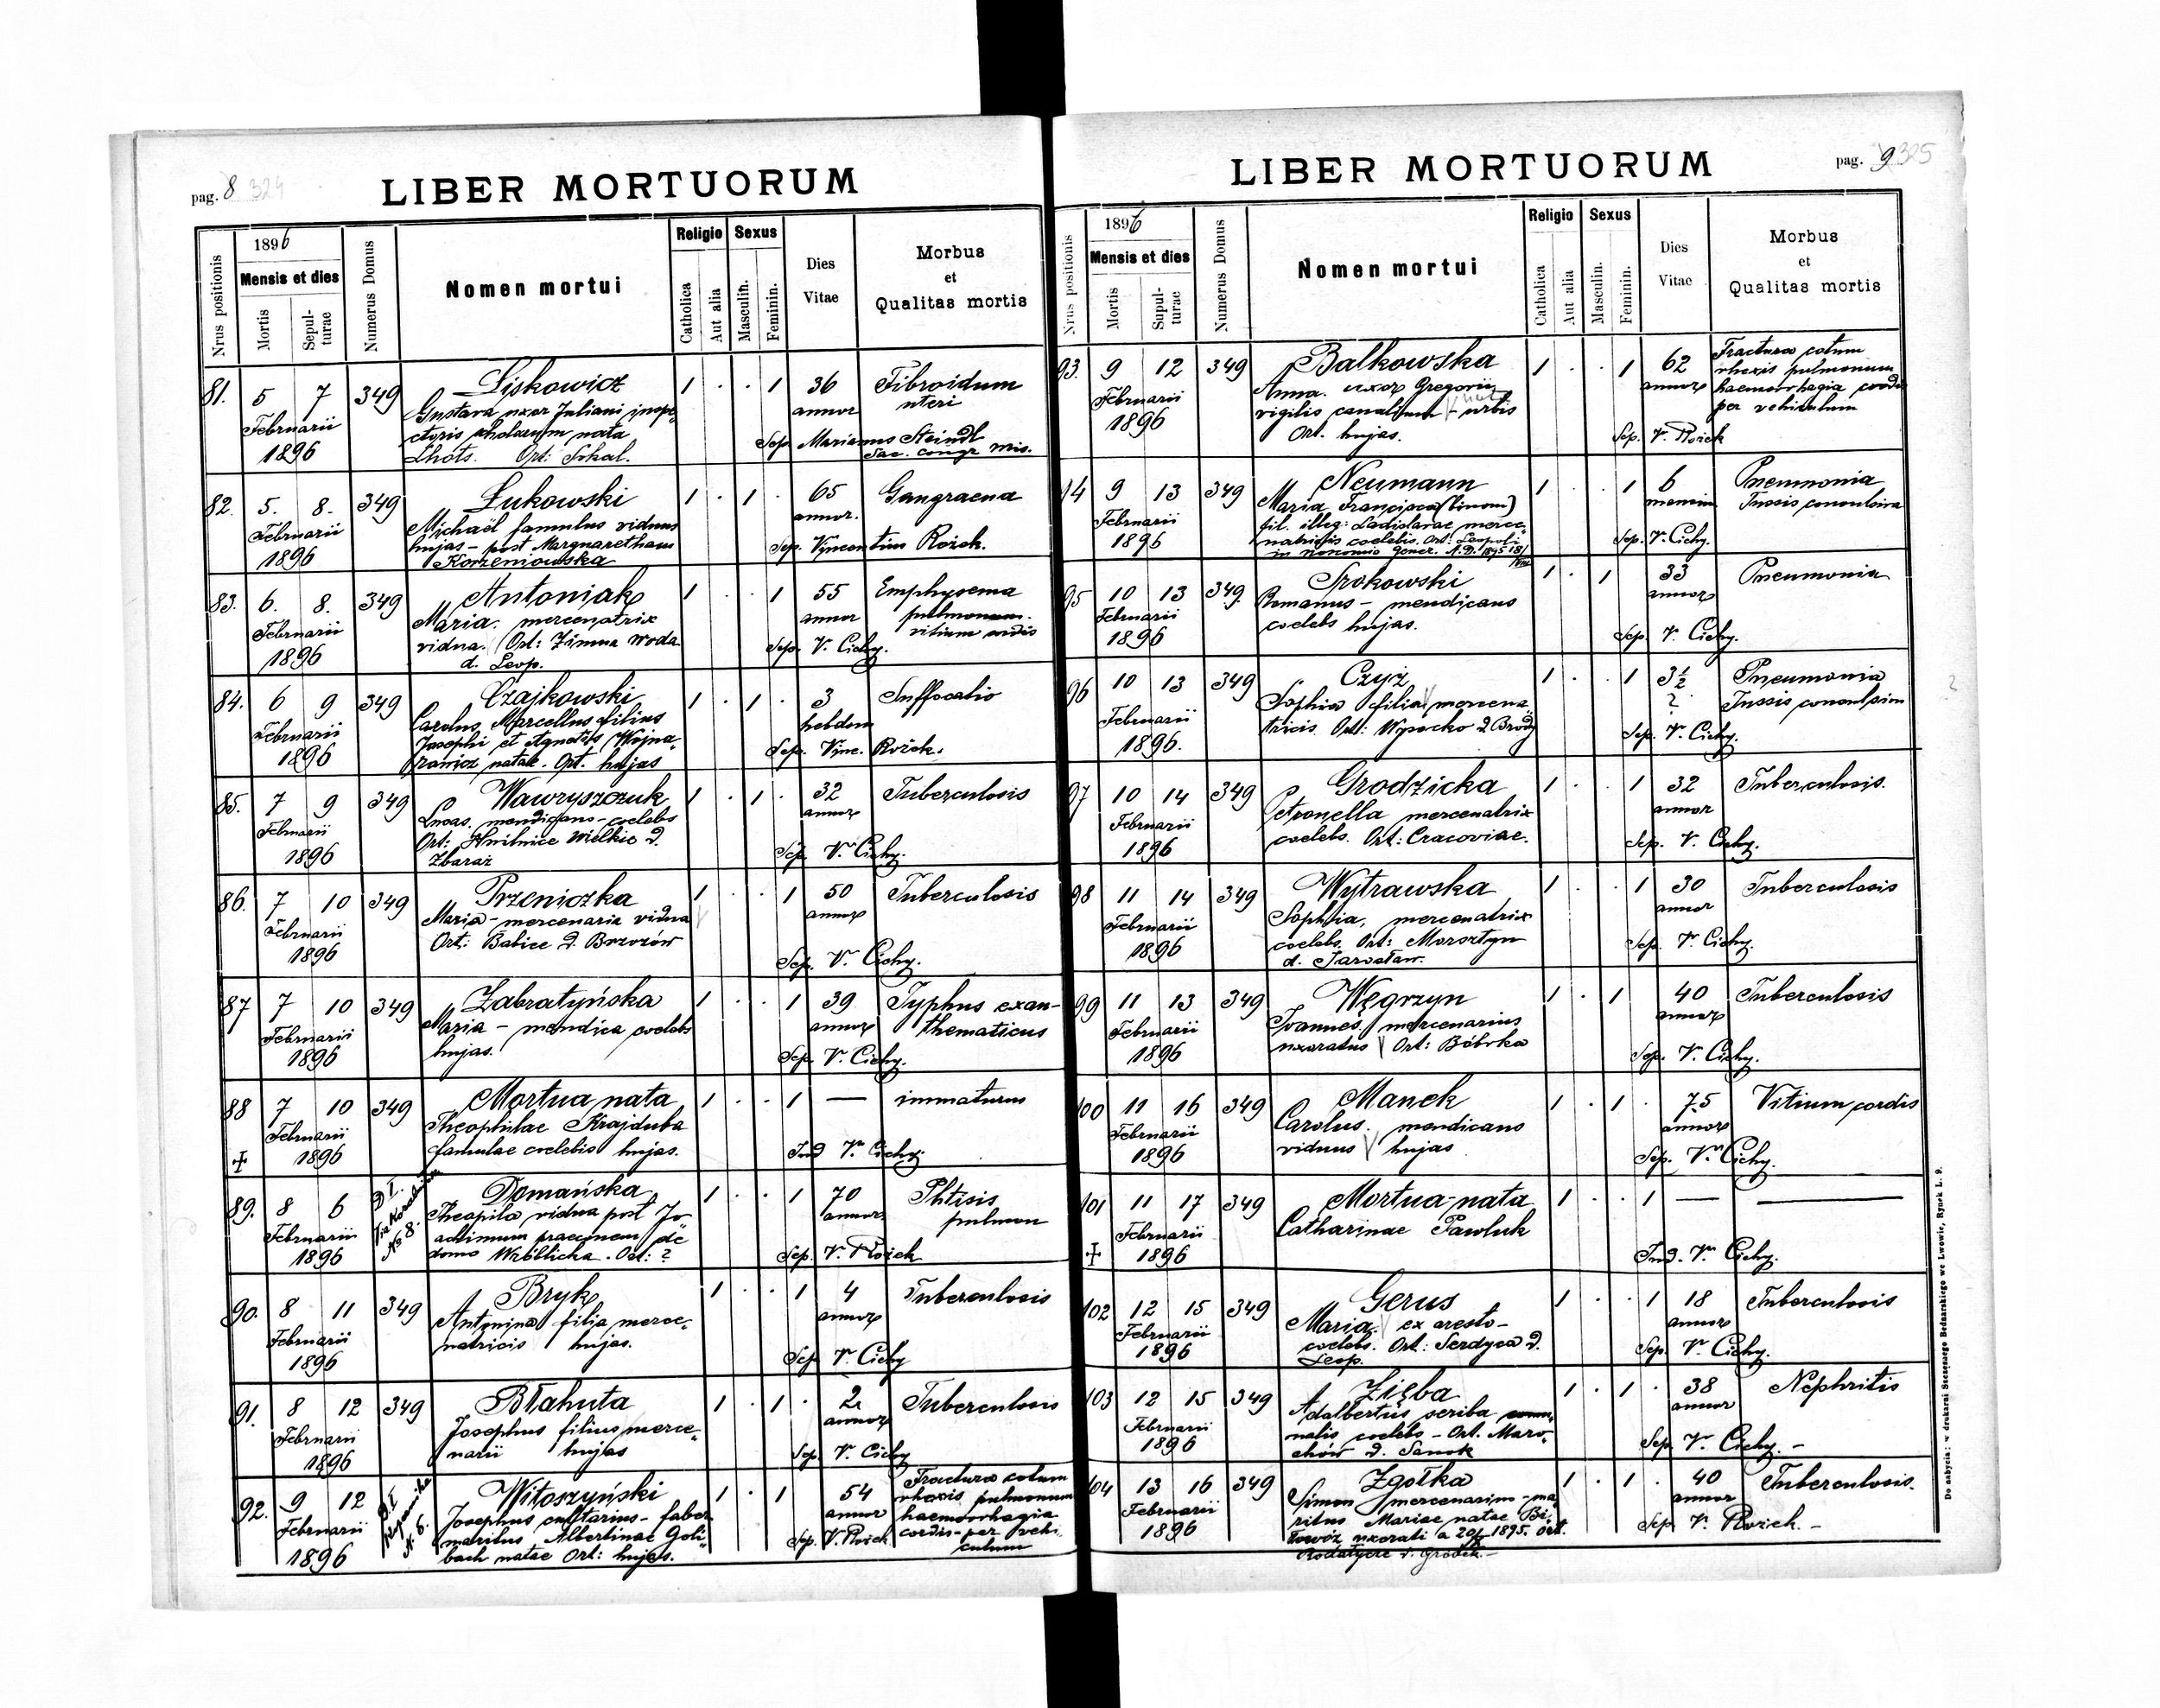 pag. 8 324
LIBER MORTUORUM
Nrus positionis
1896
Mensis et dies
Mortis
Sepul-
turae
Numerus Domus
Nomen mortui
Religio
Catholica
Aut alia
Sexus
Masculin.
Feminin.
Dies
Vitae
Morbus
et
Qualitas mortis
81. 5 7 349 Liskowicz 1 . . 1 36 Fibroidum
Februarii Gustava uxor Juliani annor uteri
1896 nata
Ort: Sokal. Sep. Marianus Steindl
Sac. congr. mis.
82. 5. 8. 349 Łukowski 1 . 1 . 65 Gangraena
Februarii Michaël famulus viduus annor.
1896 hujas - post Margnaretham Sep. Vincentius Rożek.
Korzeniowska
83. 6. 8. 349 Antoniak 1 . . 1 55 Emphysema
Februarii Maria. mercenatrix annor pulmonum.
1896 vidua. Ort: Zimna woda vitium cordis
d. Leop. Sep. V. Cichy.
84. 6 9 349 Czajkowski 1 . 1 . 3 Suffocatio
Februarii Carolus Marcellus filius hebdom
1896 Josephi et Agnetis Wojna-
natae. Ort. hujas Sep. Vinc. Rożek.
85. 7 9 349 Wawryszczuk 1 . 1 . 32 Tuberculosis
Februarii Lucas. mendicans - coelebs annor
1896 Ort: Hnilnice Wielkie d.
Zbaraż Sep. V. Cichy.
86. 7 10 349 Przeniczka 1 . . 1 50 Tuberculosis
Februarii Maria - mercenaria vidua annor
1896 Ort: Babice d. Brzozów
Sep. V. Cichy.
87 7 10 349 Zabratyńska 1 . . 1 39 Typhus exan-
Februarii Maria - mendica coelebs annor thematicus
1896 hujas. Sep. V. Cichy.
88 7 10 349 Mortua nata 1 . . 1 — immaturus
Februarii Theophilae Krajduba
1896 famulae coelebis hujas. Ind V. Cichy.
89. 8 6 Domańska 1 . . 1 70 Phtisis
Februarii Theophila vidua post Jo- annor pulmon
1896 achimum praeconem de
domo Wróblicka. Ort: ? Sep. V. Rożek
90. 8 11 349 Bryk 1 . . 1 4 Tuberculosis
Februarii Antonina filia merce- annor
1896 natricis hujas. Sep. V. Cichy
91. 8 12 349 Błahuta 1 . 1 . 2 Tuberculosis
Februarii Josephus filius merce- annor
1896 narii hujas Sep. V. Cichy
92. 9 12 Witoszyński 1 . 1 54 Fractura cotum
Februarii Josephus - faber annor rhexis pulmonum
1896 maritus Albertinae Goli- haemorrhagia
bach natae Ort: hujas. Sep. V. Rożek cordis - per vehi-
culum
pag. 9 325
LIBER MORTUORUM
Nrus positionis
1896
Mensis et dies
Mortis
Supul-
turae
Numerus Domus
Nomen mortui
Religio
Catholica
Aut alia
Sexus
Masculin.
Feminin.
Dies
Vitae
Morbus
et
Qualitas mortis
93. 9 12 349 Balkowska 1 . . 1 62 Fractura cotum
Februarii Anna. uxor Gregorii annor rhexis pulmonum
1896 vigilis canalium - urbis haemorrhagia cordis
Ort. hujas. per vehiculum
Sep. V. Rożek
94 9 13 349 Neumann 1 . . 1 6 Pneumonia
Februarii Maria Francisca (binom) mensium Tussis convulsiva
1896 fil. illeg: Ladislavae merce-
natricis coelebis. Ort: Leopoli Sep. V. Cichy.
95 10 13 349. Srokowski 1 . 1 33 Pneumonia
Februarii Romanus - mendicans annor
1896 coelebs hujas. Sep. V. Cichy.
96 10 13 349 Czyż 1 . . 1 3½ Pneumonia
Februarii Sophia filia mercena- ? Tussis convulsiva
1896. tricis. Ort: Wysocko d. Brody Sep. V. Cichy.
97 10 14 349 Grodzicka 1 . . 1 32 Tuberculosis.
Februarii Petronella mercenatrix annor
1896 coelebs. Ort: Cracoviae. Sep. V. Cichy.
98 11 14 349 Wytrawska 1 . . 1 30 Tuberculosis
Februarii Sophia, mercenatrix annor
1896 coelebs. Ort: Morsztyn
d. Jarosław. Sep. V. Cichy.
99 11 13 349 Węgrzyn 1 . 1 40 Tuberculosis
Februarii Joannes, mercenarius annor
1896 uxoratus Ort: Bóbrka Sep. V. Cichy.
100 11 16 349 Manek 1 . 1 . 75 Vitium cordis
Februarii Carolus. mendicans annor
1896 viduus hujas Sep. V. Cichy.
101 11 17 349 Mortua-nata 1 . . 1 — —
Februarii Catharinae Pawluk
1896 Ind. V. Cichy.
102 12 15 349 Gerus 1 . . 1 18 Tuberculosis
Februarii Maria. ex aresto - annor
1896 coelebs. Ort: Serdyca d.
Leop. Sep. V. Cichy.
103 12 15 349 Zięba 1 . 1 . 38 Nephritis
Februarii Adalbertus scriba commu- annor
1896 nalis coelebs - Ort. Maro-
chów d. Sanok Sep. V. Cichy. -
104 13 16 349 Zgołka 1 . 1 . 40 Tuberculosis.
Februarii Simon mercenarius - ma- annor
1896 ritus Mariae natae Bi-
uxorati a 1895. Ort. Sep. V. Rożek. -
Rodatycze d. Gródek. -
Do nabycia: w drukarni Szczęsnego Bednarskiego we Lwowie, Rynek L. 9.